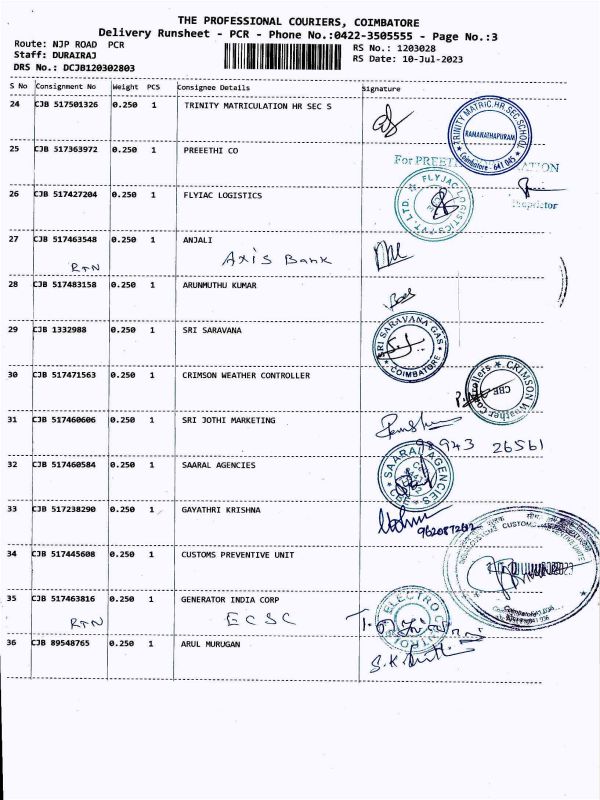 THE PROFESSIONAL COURIERS, COIMBATORE
Delivery Runsheet - PCR - Phone No.:0422-3505555 - Page No.:3
Route: NJP ROAD PCR
RS No.: 1203028
Staff: DURAIRAJ
RS Date: 10-Jul-2023
DRS No.: DCJB120302803
S No Consignment No Weight PCS Consignee Details Signature
24 CJB 517501326 0.250 1 TRINITY MATRICULATION HR SEC S
TRINITY MATRIC. HR. SEC. SCHOOL
RAMANATHAPURAM
Coimbatore - 641 045
25 CJB 517363972 0.250 1 PREEETHI CO
For PREETHI
Proprietor
26 CJB 517427204 0.250 1 FLYIAC LOGISTICS
FLYJAC LOGISTICS PVT. LTD.
27 CJB 517463548 0.250 1 ANJALI
RTN Axis Bank
28 CJB 517483158 0.250 1 ARUNMUTHU KUMAR
29 CJB 1332988 0.250 1 SRI SARAVANA
SRI SARAVANA GAS
COIMBATORE
30 CJB 517471563 0.250 1 CRIMSON WEATHER CONTROLLER
CRIMSON Weather Controllers
CBE
31 CJB 517460606 0.250 1 SRI JOTHI MARKETING
98943 26561
32 CJB 517460584 0.250 1 SAARAL AGENCIES
SAARAL AGENCIES
33 CJB 517238290 0.250 1 GAYATHRI KRISHNA
34 CJB 517445608 0.250 1 CUSTOMS PREVENTIVE UNIT
CUSTOMS
35 CJB 517463816 0.250 1 GENERATOR INDIA CORP
RTN ECSC
ELECTRO
36 CJB 89548765 0.250 1 ARUL MURUGAN